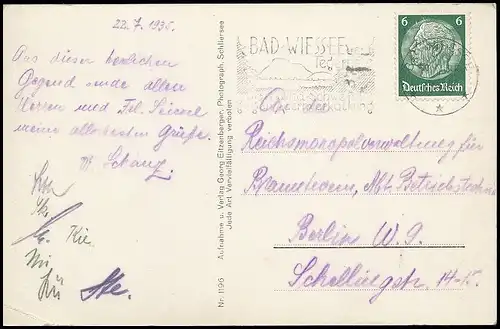 22. 7. 1935.
Aus dieser herrlichen
Gegend sende allen
Herren und Frl.
meine allerbesten Grüße.
Schanz.
Kie
Nr. 1196
Aufnahme u. Verlag Georg Eitzenberger, Photograph, Schliersee
Jede Art Vervielfältigung verboten
BAD WIESSEE
6 6
Deutsches Reich
An die
Reichsmonopolverwaltung für
Branntwein, Abt. Betriebstechnik
Berlin W. 9.
Schellingstr. 14-15.